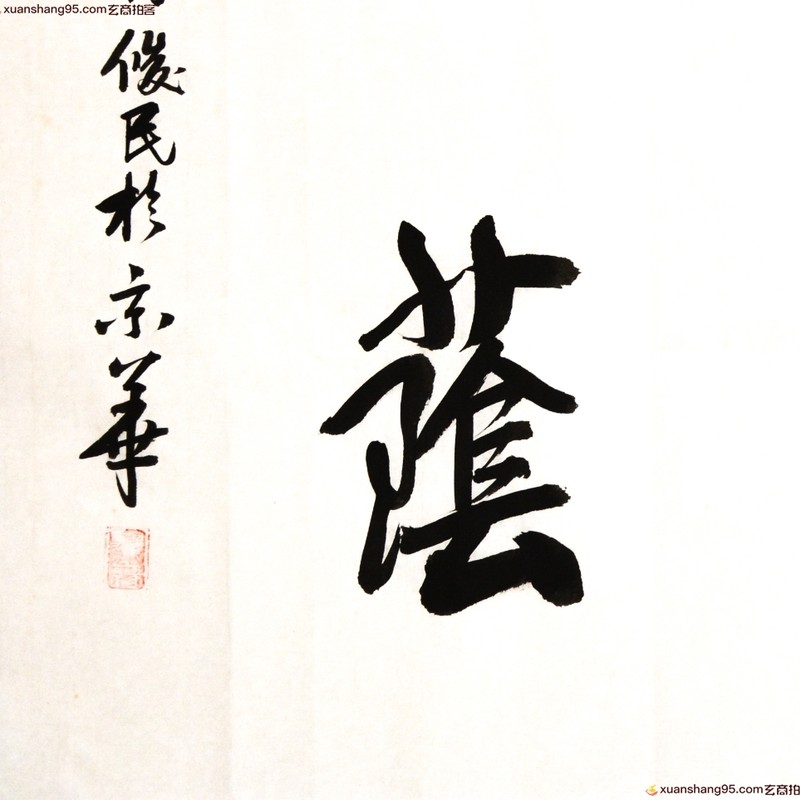 蔭
俊民於京華
xuanshang95.com玄商拍客
xuanshang95.com玄商拍